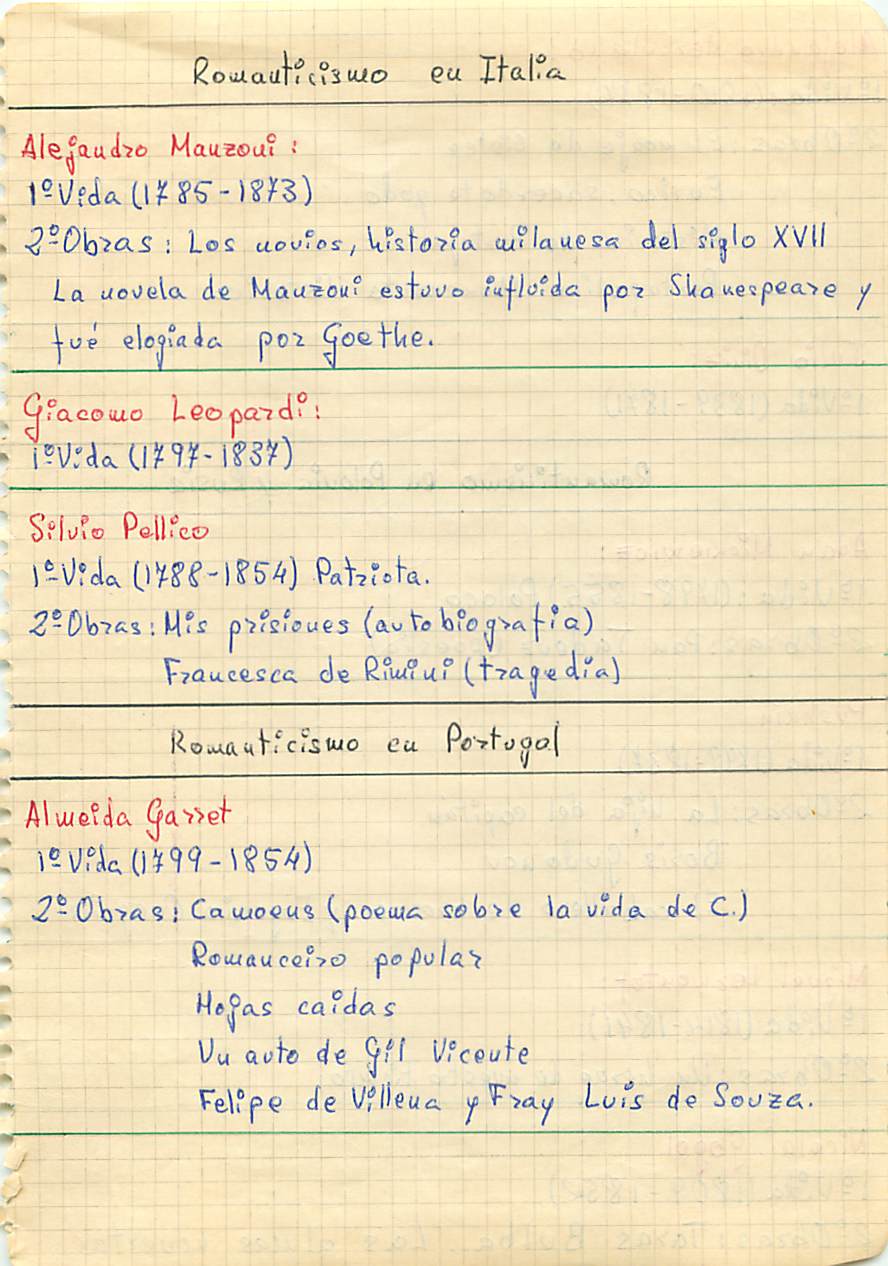 Romanticismo en Italia
Alejandro Manzoni :
1º Vida (1785-1873)
2º Obras : Los novios, historia milanesa del siglo XVII
La novela de Manzoni estuvo influida por Shakespeare y
fué elogiada por Goethe.
Giacomo Leopardi :
1º Vida (1797-1837)
Silvio Pellico
1º Vida (1788-1854) Patriota.
2º Obras : Mis prisiones (autobiografia)
Francesca de Rimini (tragedia)
Romanticismo en Portugal
Almeida Garret
1º Vida (1799-1854)
2º Obras : Camoens (poema sobre la vida de C.)
Romanceiro popular
Hojas caidas
Un auto de Gil Vicente
Felipe de Villena y Fray Luis de Souza.